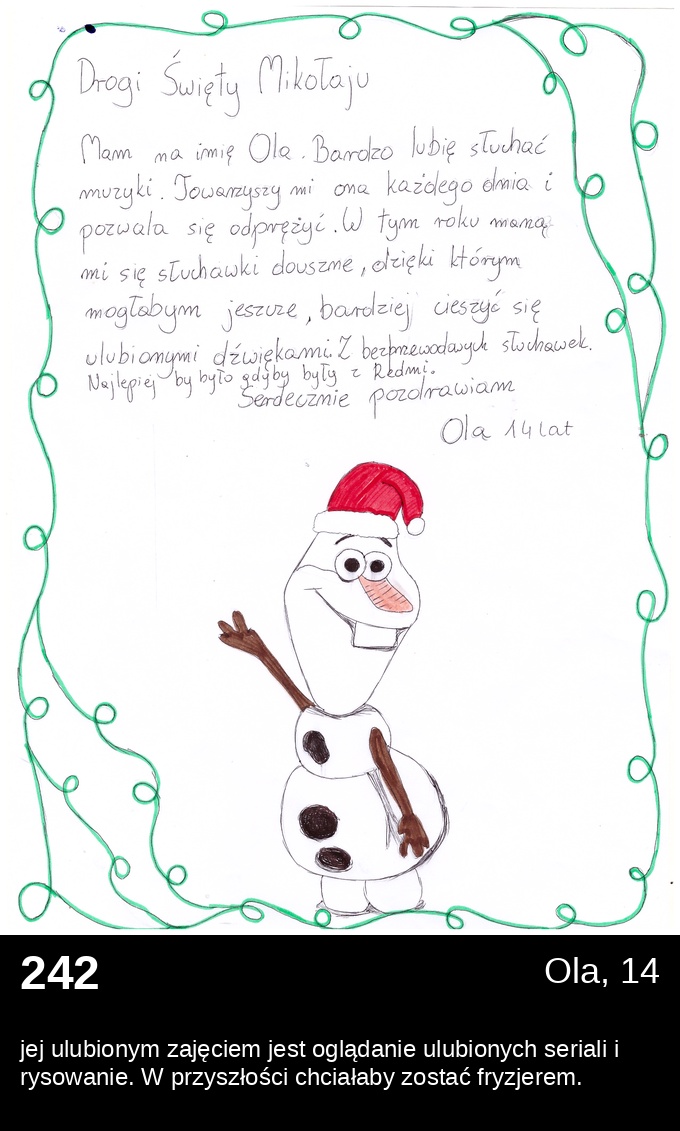 Drogi Święty Mikołaju
Mam na imię Ola. Bardzo lubię słuchać
muzyki. Towarzyszy mi ona każdego dnia i
pozwala się odprężyć. W tym roku marzą
mi się słuchawki douszne, dzięki którym
mogłabym jeszcze, bardziej cieszyć się
ulubionymi dźwiękami. Z bezprzewodowych słuchawek.
Najlepiej by było gdyby były z Redmi.
Serdecznie pozdrawiam
Ola 14 lat
242
Ola, 14
jej ulubionym zajęciem jest oglądanie ulubionych seriali i
rysowanie. W przyszłości chciałaby zostać fryzjerem.